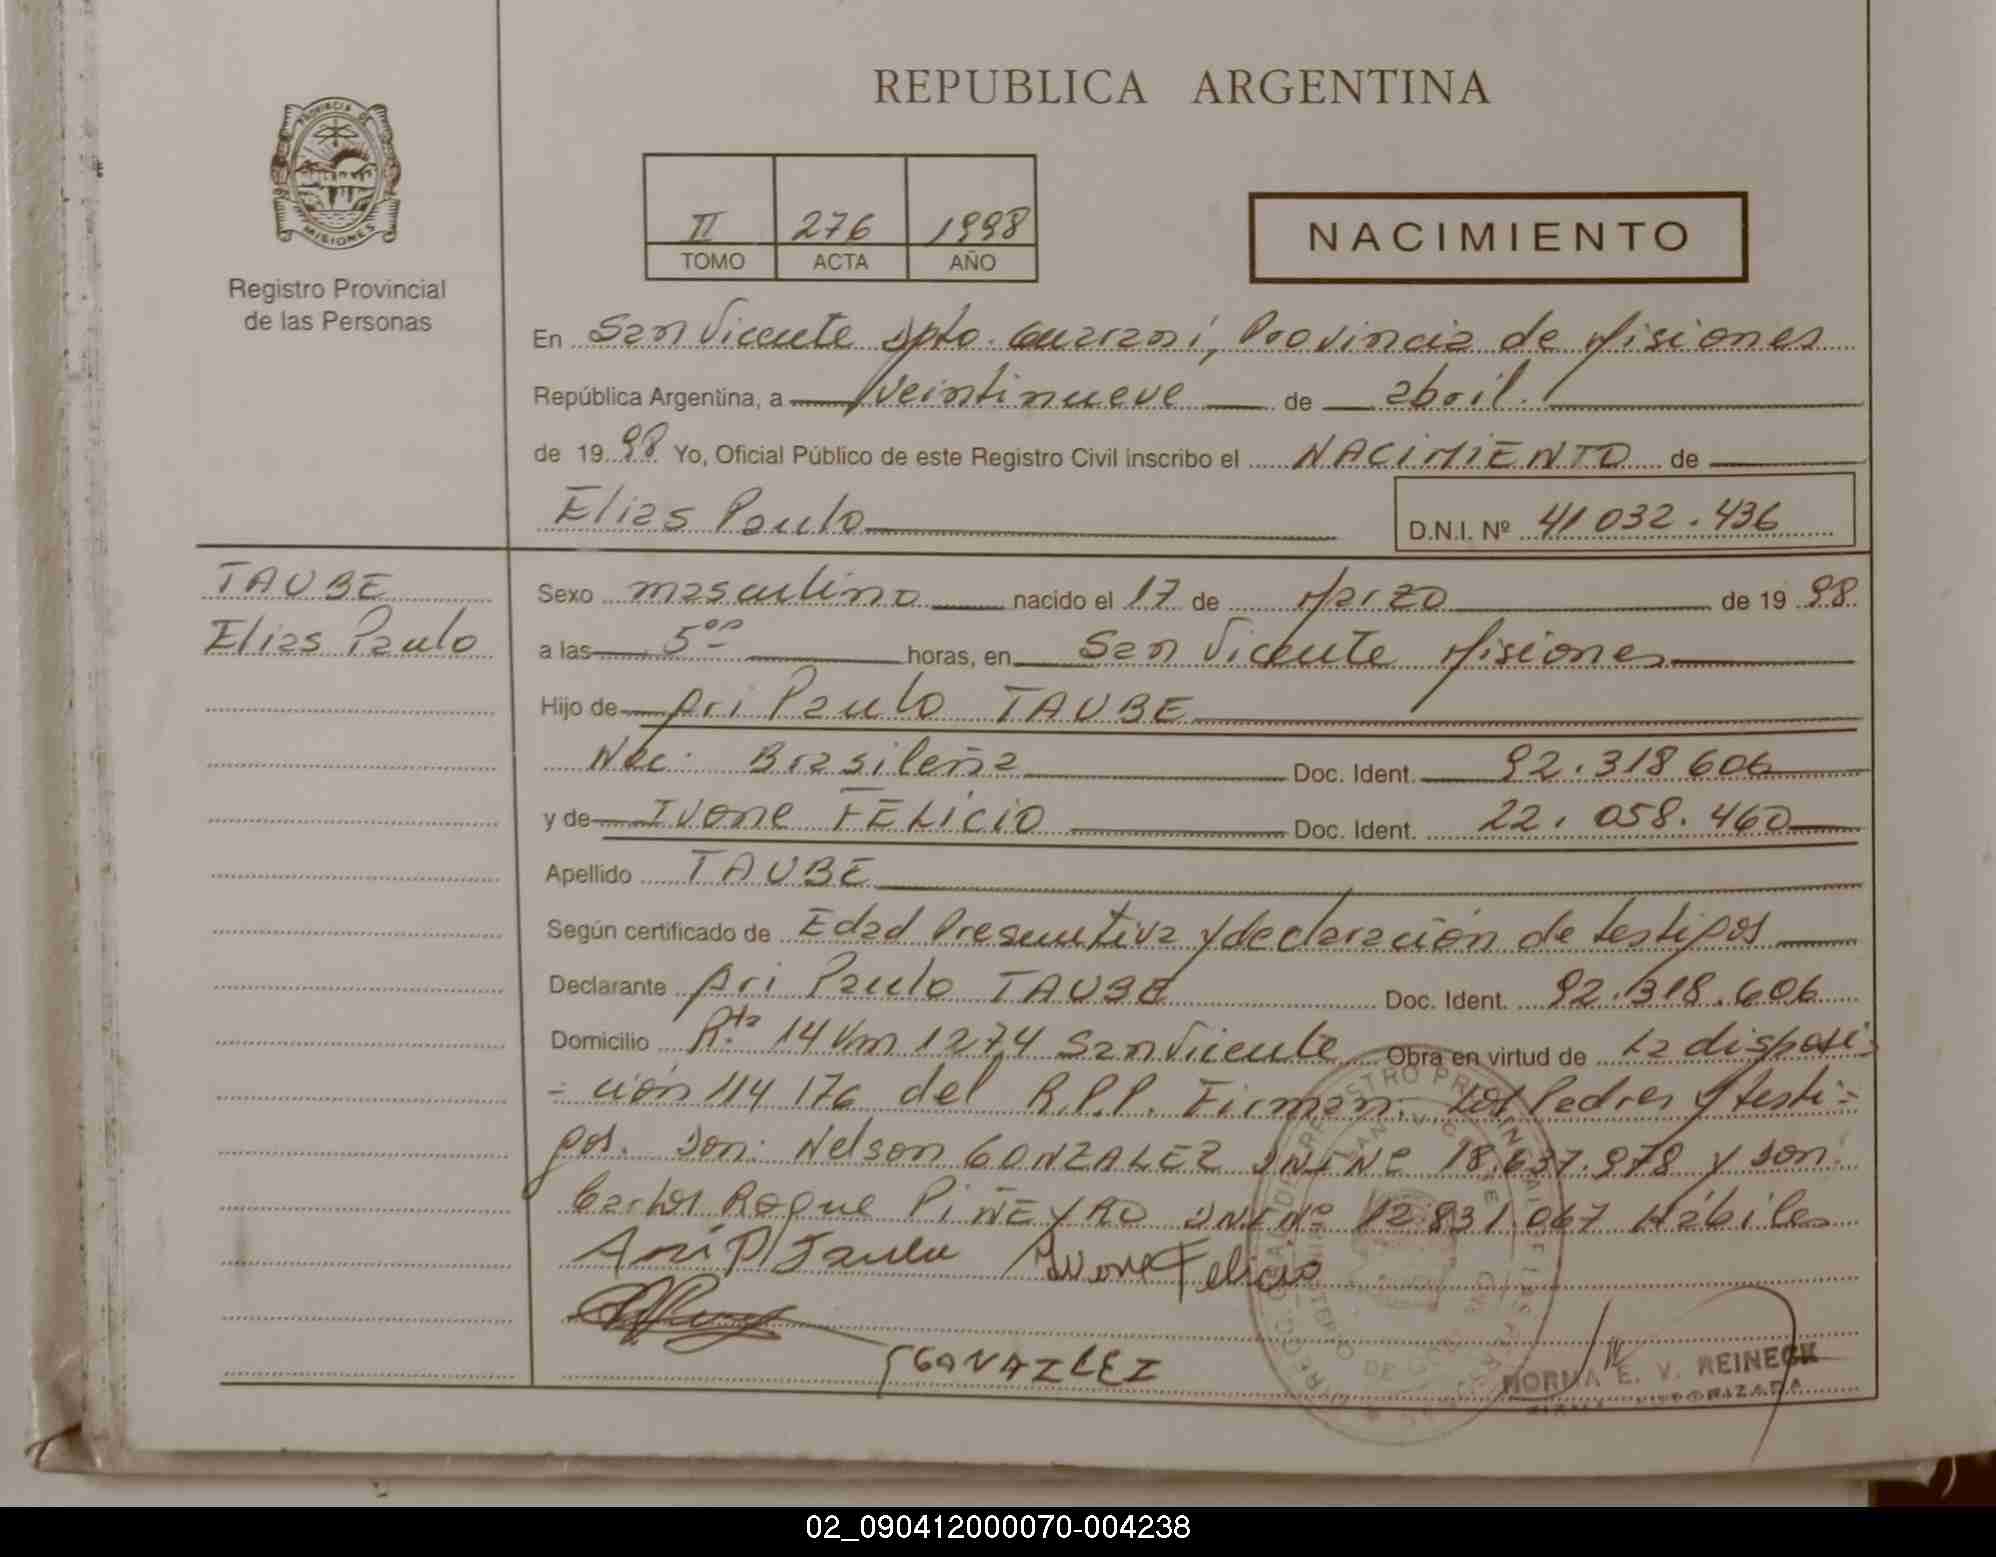 REPUBLICA ARGENTINA
PROVINCIA DE
MISIONES
Registro Provincial
de las Personas
II 276 1998
TOMO ACTA AÑO
NACIMIENTO
En San Vicente Dpto. Guaraní, Provincia de Misiones
República Argentina, a veintinueve de abril.
de 1998 Yo, Oficial Público de este Registro Civil inscribo el NACIMIENTO de
Elias Paulo
D.N.I. Nº 41 032.436
TAUBE
Elias Paulo
Sexo masculino nacido el 17 de Marzo de 1998
a las 5 00 horas, en San Vicente Misiones
Hijo de Ari Paulo TAUBE
Nac. Brasileña Doc. Ident. 92.318 606
y de Ivone FELICIO Doc. Ident. 22.058.460
Apellido TAUBE
Según certificado de Edad Presuntiva y declaración de testigos
Declarante Ari Paulo TAUBE Doc. Ident. 92.318.606
Domicilio Rta 14 Km 1274 San Vicente Obra en virtud de La disposi-
=ción 114 176 del R.P.P. Firman: Los Padres y testi=
gos. Don: Nelson GONZALEZ DNI Nº 18.637.978 y Don:
Carlos Roque PIÑEYRO DNI Nº 12 831 067 Hábiles
Ari P Taube Ivone Felicio
GONAZLEZ
NORMA E. V. REINECK
02_090412000070-004238